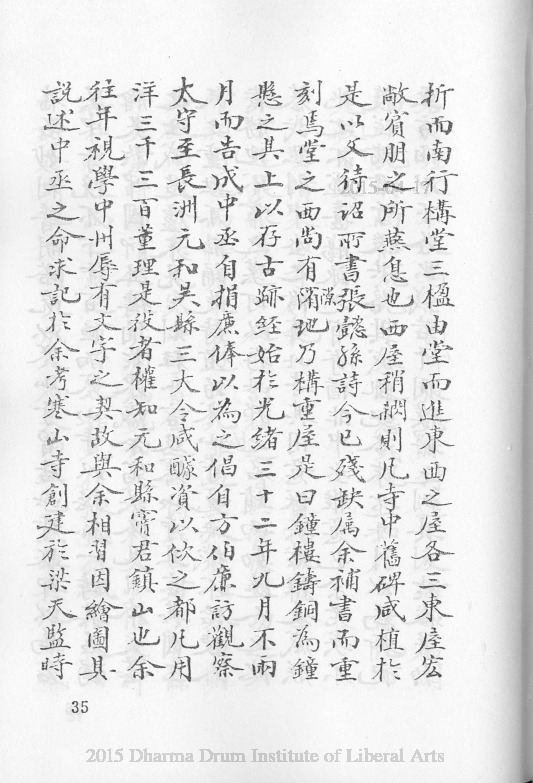 折而南行構堂三楹由堂而進東西之屋各三東屋宏
敞賓朋之所燕息也西屋稍濶則凡寺中舊碑咸植於
是以文待詔所書張懿孫詩今已殘缺属余補書而重
刻焉堂之西尚有隙地乃構重屋是曰鐘樓鑄銅為鐘
懸之其上以存古跡經始於光緒三十二年九月不兩
月而告成中丞自捐廉俸以為之倡自方伯廉訪觀察
太守至長洲元和吳縣三大令咸醵資以佽之都凡用
洋三千三百董理是役者權知元和縣甯君鎮山也余
往年視學中州辱有文字之契故與余相習因繪圖具
説述中丞之命求記於余考寒山寺創建於梁天監時
35
2015 Dharma Drum Institute of Liberal Arts